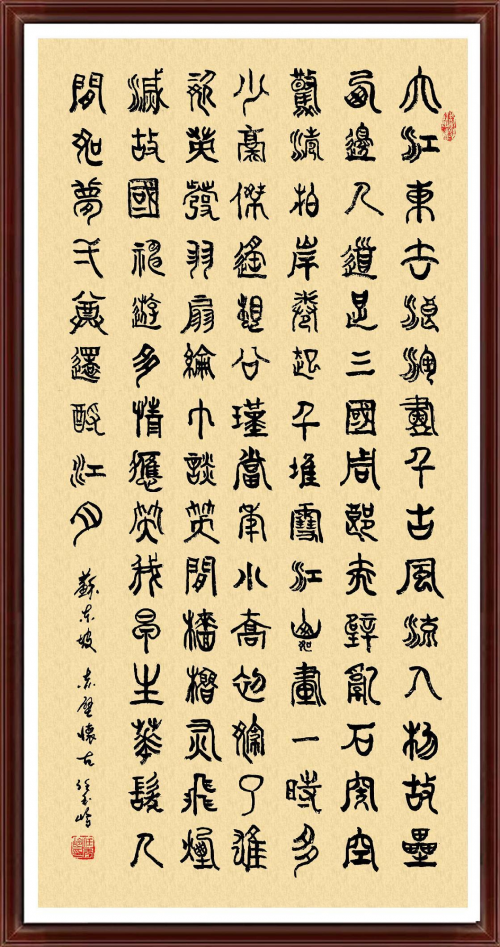 大江東去浪淘盡千古風流人物故壘
西邊人道是三國周郎赤壁亂石穿空
驚濤拍岸卷起千堆雪江山如畫一時多
少豪傑遙想公瑾當年小喬初嫁了雄
姿英發羽扇綸巾談笑間檣櫓灰飛煙
滅故國神遊多情應笑我早生華髮人
間如夢弌尊還酹江月
蘇东坡 赤壁懷古